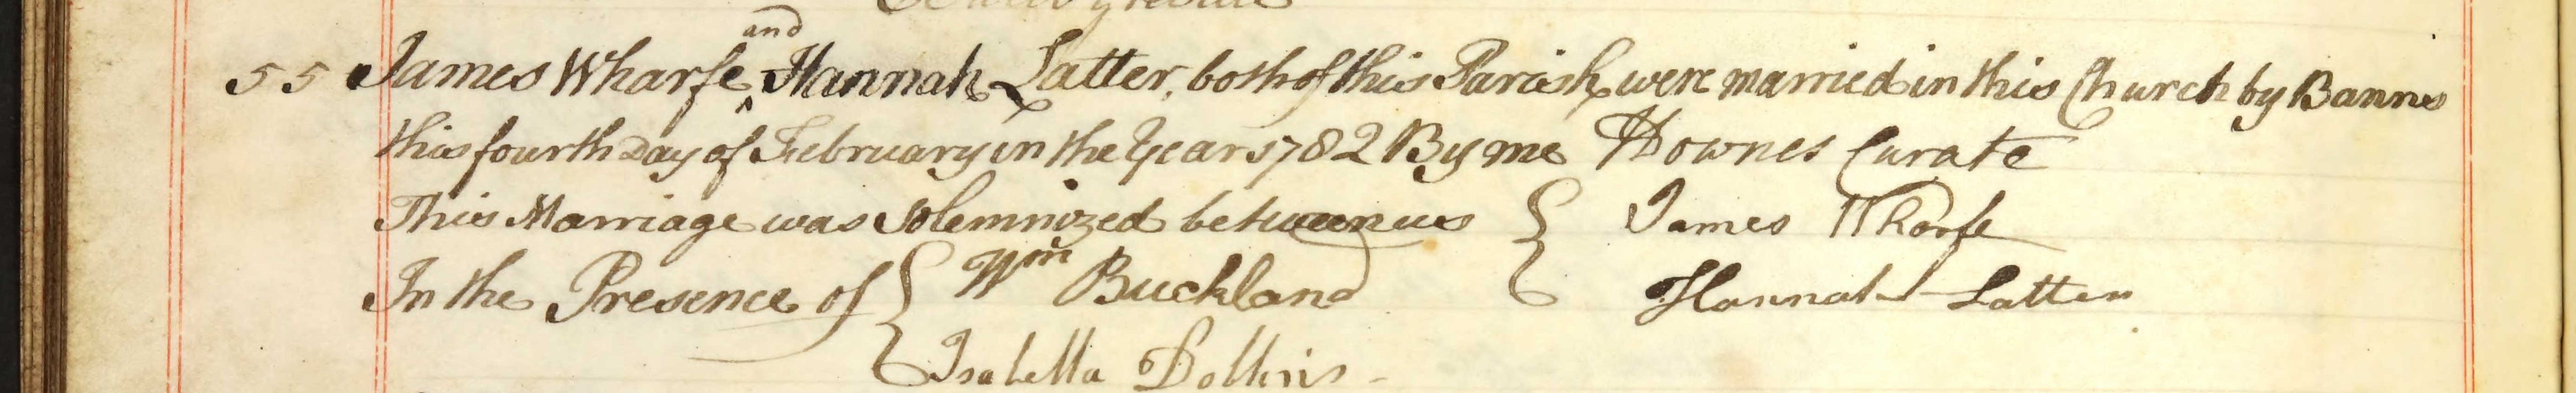 and
55 James Wharfe ^ Hannah Latter, both of this Parish were married in this Church by Banns
this fourth Day of February in the Year 1782 By me Downes Curate
This Marriage was Solemnized between us { James Wharfe
In the Presence of { Wm Buckland Hannah Latter
Isabella Dollins